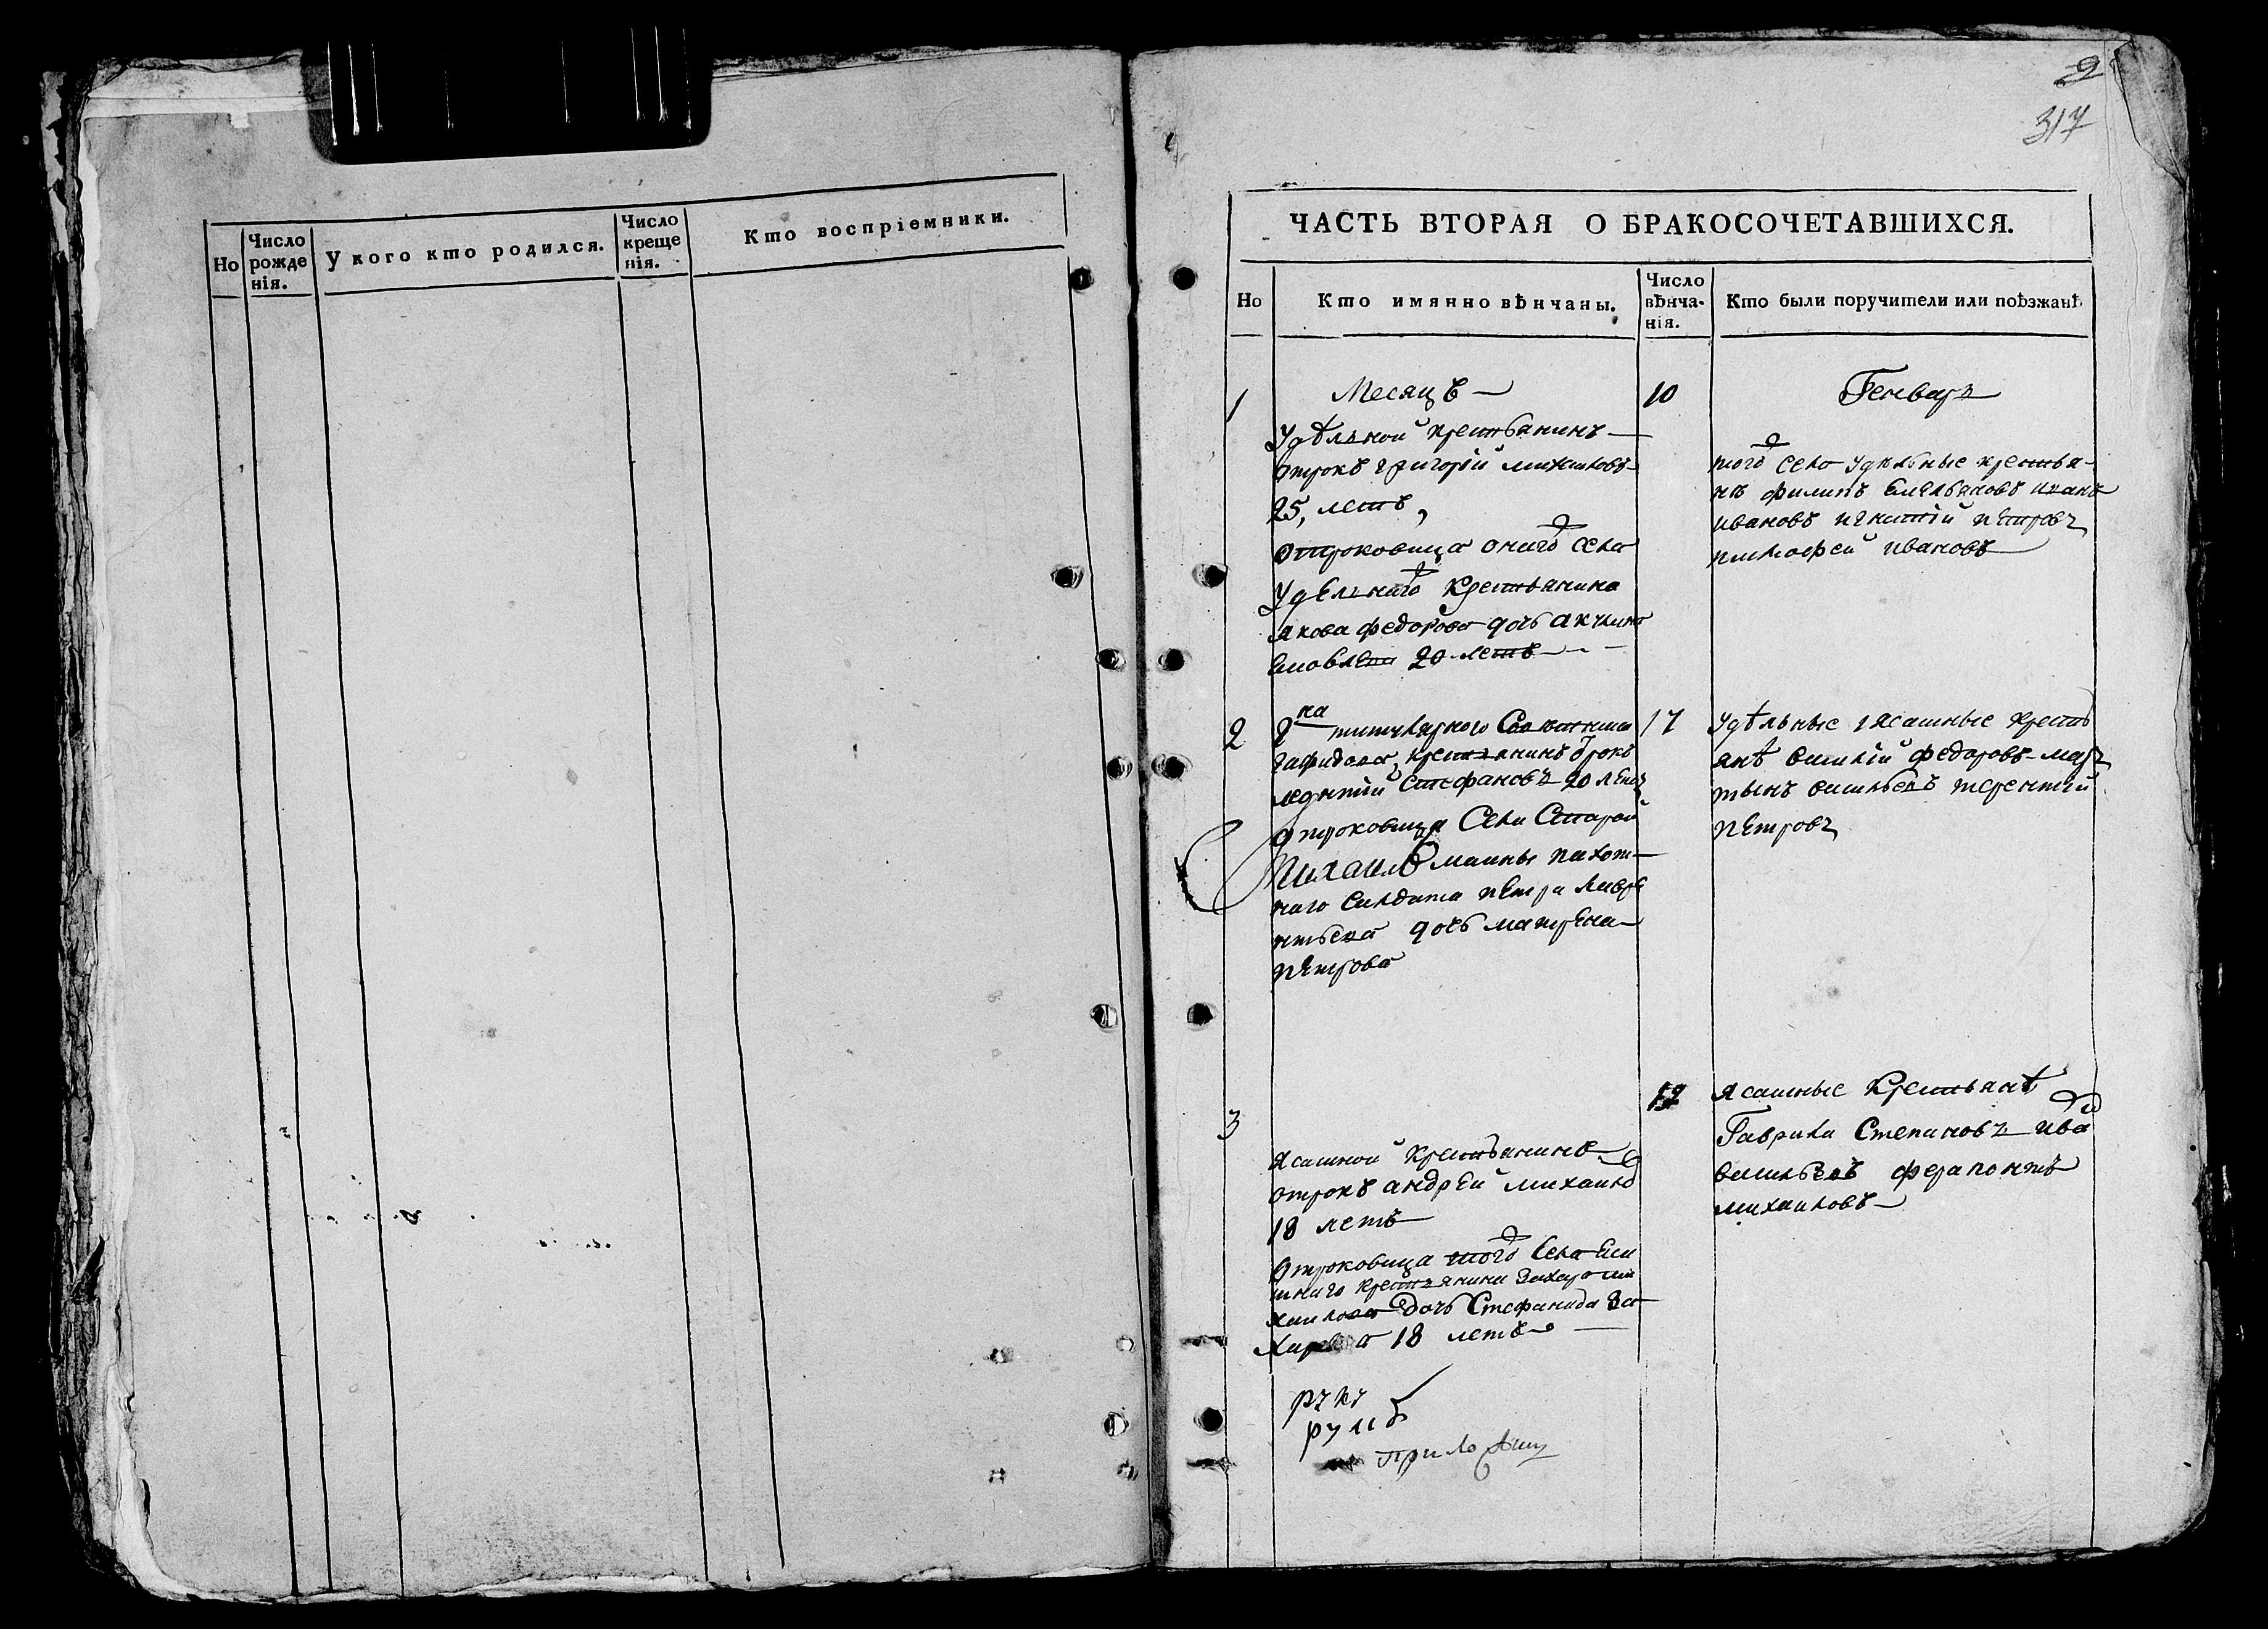 Но
Число рожде нія.
У кого кто родился.
Число креще нія.
Кто воспріемники.
2
317
ЧАСТЬ ВТОРАЯ О БРАКОСОЧЕТАВШИХСЯ.
Но
Кто имянно вѣнчаны.
Число вѣнча- нія.
Кто были поручители или поѣзжанѣ
1
Месяцъ
10
Генварь
Удѣльной крестьянинъ
отрокъ григорій михаиловъ
25, летъ,
отроковица онаго села
Удельнаго крестьянина
якова федорова дочь акулина
20 летъ
того села удельные крестья-
нѣ филипъ емельяновъ иванъ
ивановъ игнатій петровъ
тимофей ивановъ
2
2 на титулярного
крестьянинъ отрокъ
стефановъ 20 летъ
отроковица села старой
маины пахот-
наго солдата петра лавре
нтьева дочь матрена
петрова
17
Удѣльные ясашные кресть
янѣ василій федоровъ мар
тынъ васильевъ терентий
петровъ
3
ясашной крестьянинъ
отрокъ андрей михаило
18 летъ
отроковица того села
шнаго крестьянина захара ми
хаилова дочь стефанида за
харова 18 летъ
ясашные крестьянѣ
Гаврила степановъ ива
васильевъ ферапонтъ
михаиловъ
руку
приложил